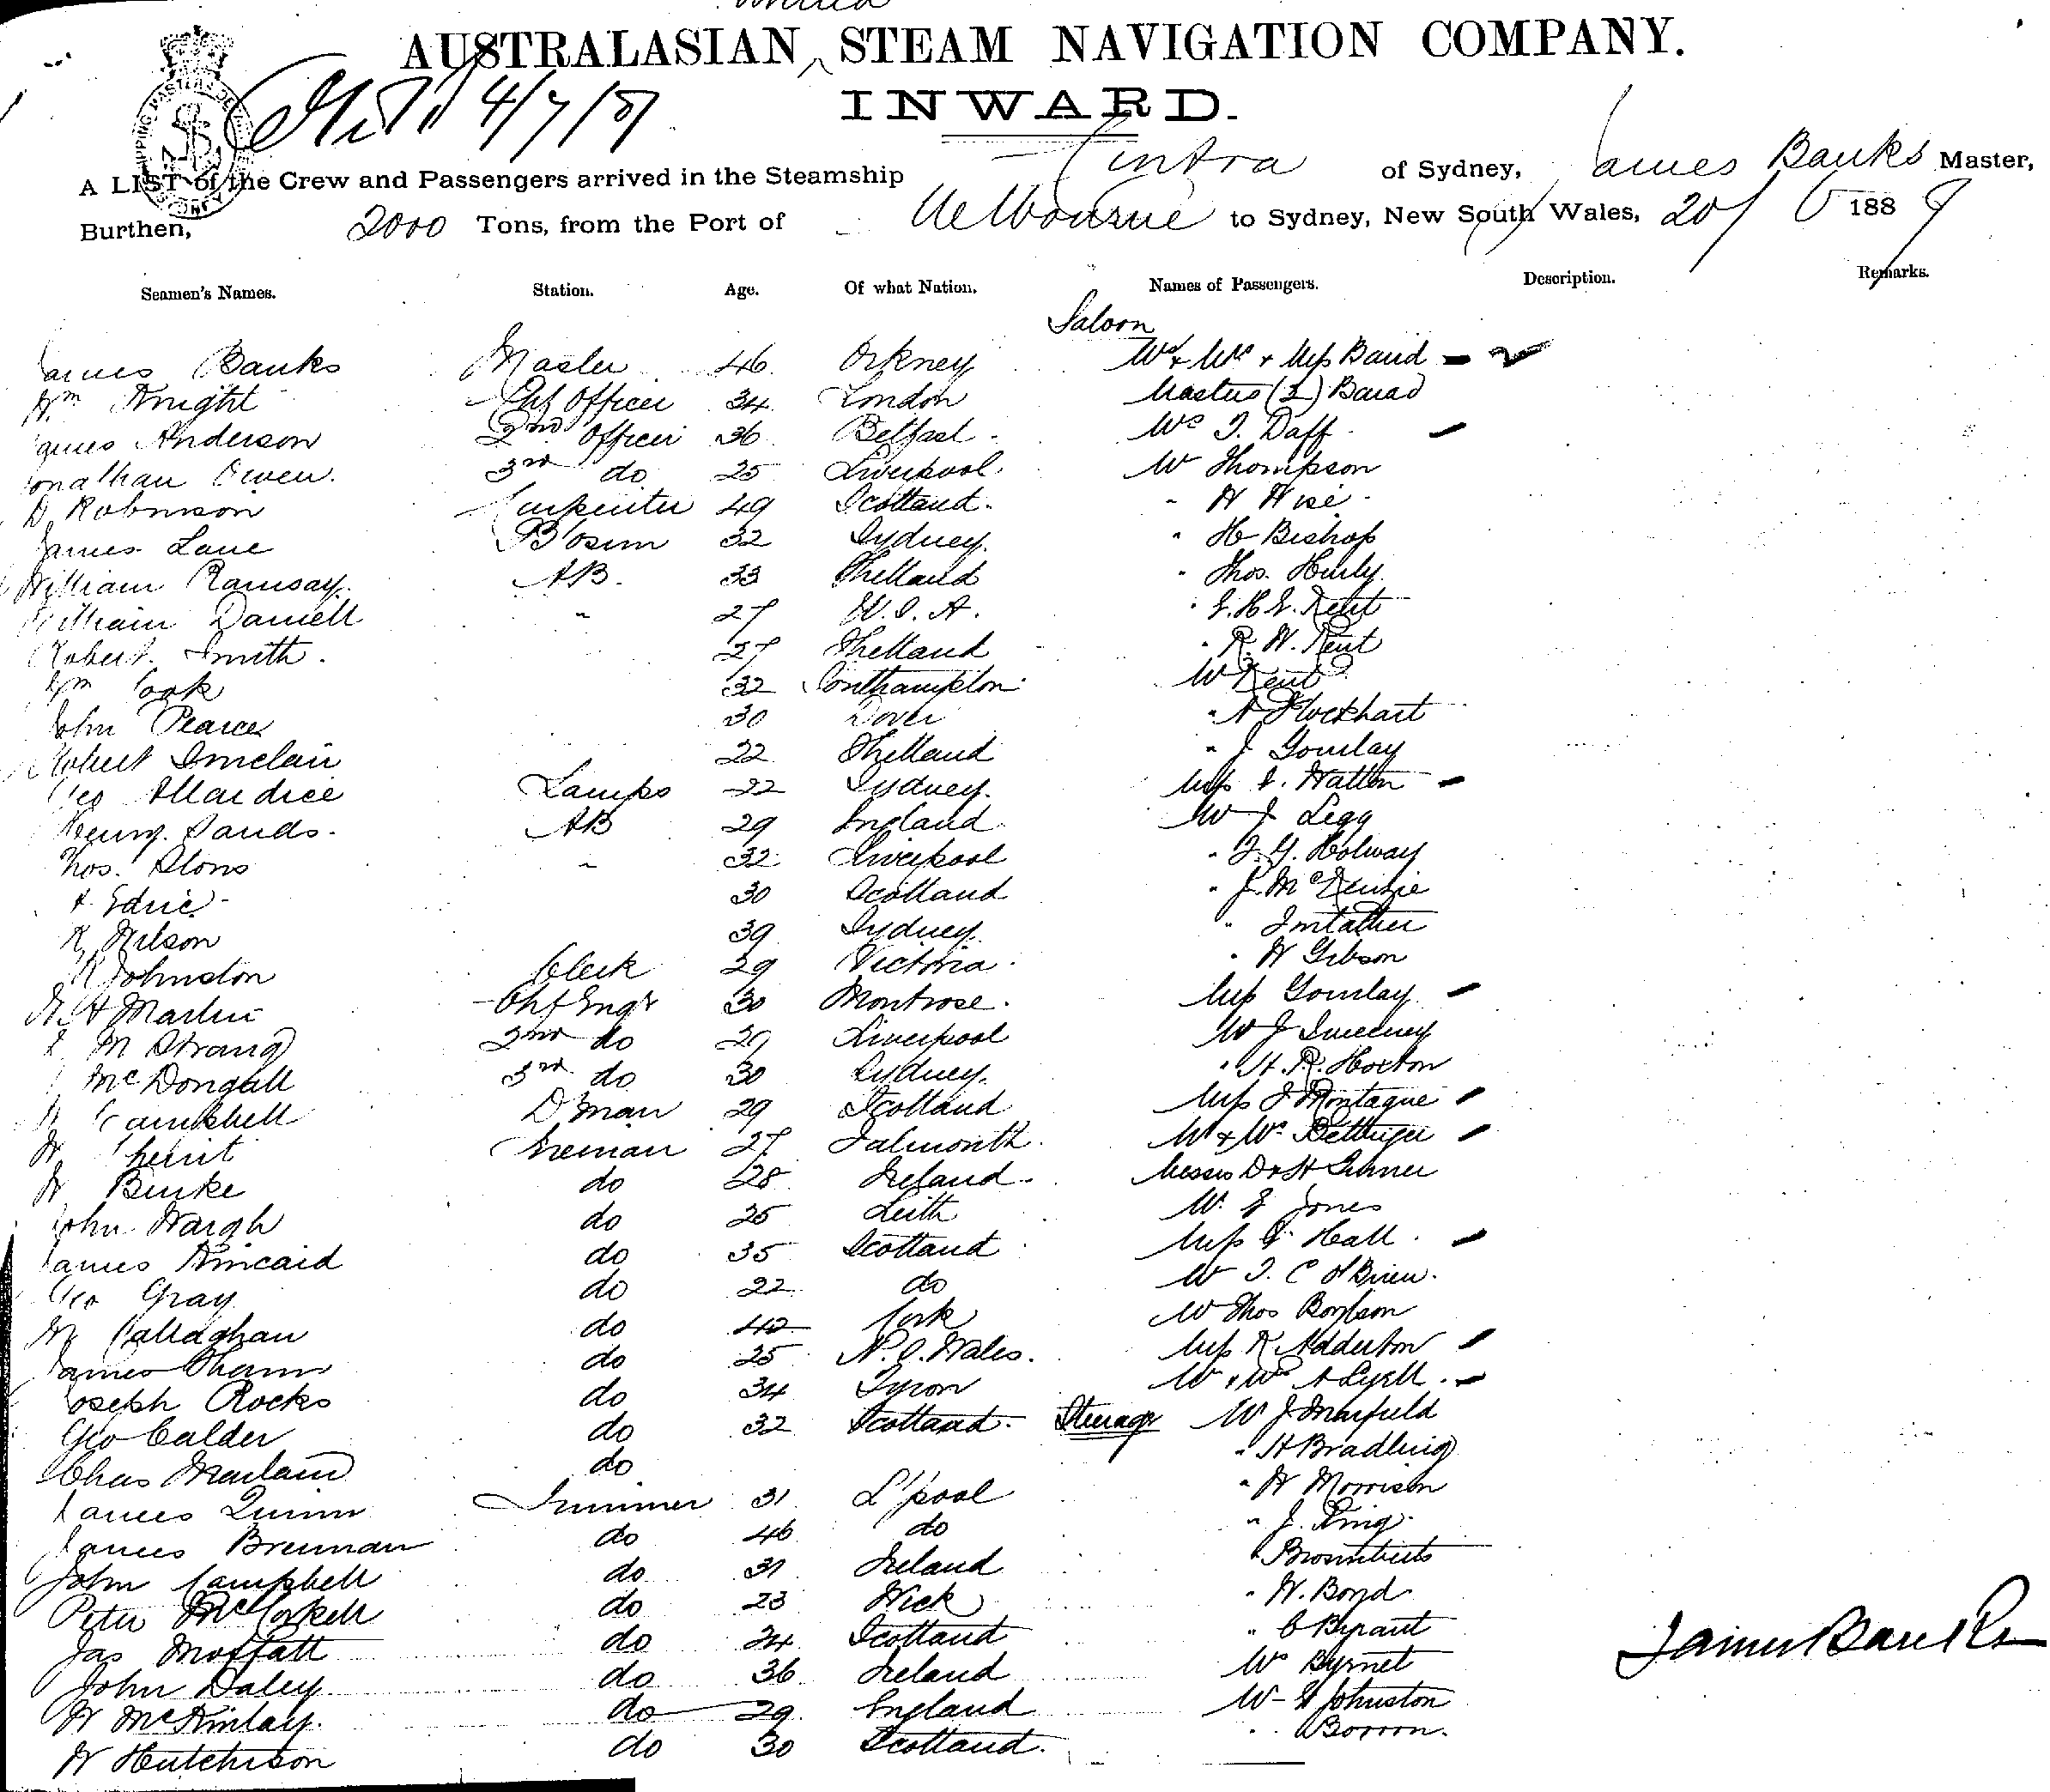 United
AUSTRALASIAN STEAM NAVIGATION COMPANY.
4/7/87
INWARD.
A LIST of the Crew and Passengers arrived in the Steamship Cintra of Sydney, James Banks Master,
Burthen, 2000 Tons, from the Port of Melbourne to Sydney, New South Wales, 20/ 6/ 1887
Seamen's Names. Station. Age. Of what Nation. Names of Passengers. Description. Remarks.
Saloon
James Banks Master 46 Orkney Mr & Mrs & Miss Baird
Wm Knight Chf Officer 34 London Masters (2) Baird
James Anderson 2nd Officer 36 Belfast Mrs J. Daff
Jonathan Owen. 3rd do 25 Liverpool Mr Thompson
D Robinson Carpenter 49 Scotland. " W Wise
James Lane B'osun 32 Sydney. " H Bishop
William Ramsay. AB. 33 Shetland " Thos. Hurly
William Daniell " 27 U.S.A. Kent
Robert Smith. 27 Shetland " R. W. Kent
Wm Cook 32 Southampton Mr Kent
John Pearce 30 Dover Lockhart
Robert Sinclair 22 Shetland " J Gourlay
Geo Allardice Lamps 22 Sydney. Miss Hatton
Henry Sands. AB 29 England Mr J Legg
Thos. Stons " 32 Liverpool Holway
Edrie 30 Scotland " J. McKenzie
Wilson 39 Sydney.
Johnston Clerk 29 Victoria " W Gibson
Martin Chf Engr 30 Montrose. Miss Gourlay
M Strang 2nd do 29 Liverpool Mr J Sweeney
McDongall 3rd do 30 Sydney. " H. R. Horton
Campbell D'man 29 Scotland Miss J Montague
Fireman 27 Falmouth Mr & Mrs
Burke do 28 Ireland. Messrs D & H
John Waugh do 25 Leith Jones
James Kincaid do 35 Scotland Miss Hall
Geo Gray do 22 do Mr J. C O'Brien.
Callaghan do 42 Cork Mr Thos
James do 25 N.S. Wales. Miss Adderton
Joseph Rocks do 34 Tyron Mr & Mrs A Lyell
Geo Calder do 32 Scotland. Steerage Mr J
Chas do
James Quinn Trimmer 31 L'pool " W Morrison
James Brennan do 46 do " J. King
John Campbell do 31 Ireland
Peter McCorkell do 23 Wick " W. Bond
Jas Moffatt do 24 Scotland " C Bryant
John Daley do 36 Ireland
W McKinlay. do 29. England Johnston
W Hutchison do 30 Scotland.
James Banks